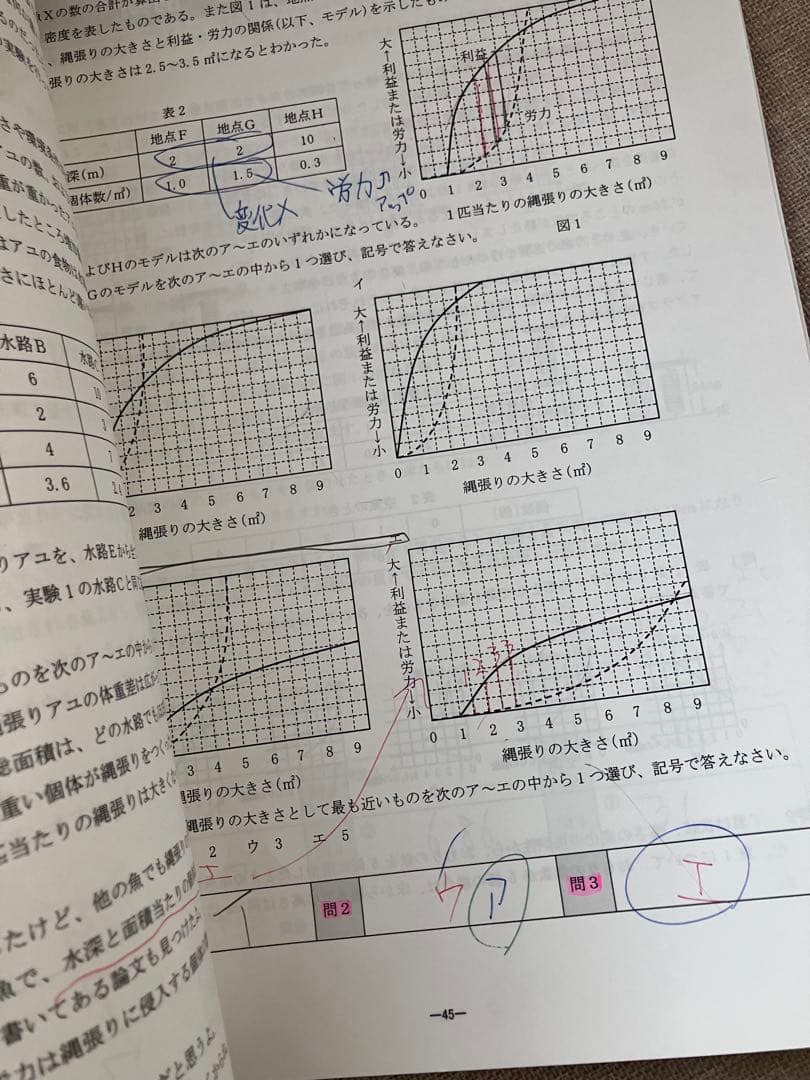 密度を表したものである。また図1は、地点
、縄張りの大きさと利益・労力の関係(以下、モデル)を示したもの
張りの大きさは2.5～3.5㎡になるとわかった。
表2
地点F 地点G 地点H
深(m) 2 2 10
個体数/㎡) 1.0 1.5 0.3
変化×
労力↑
アップ
大←利益または労力→小
利益
労力
0 1 2 3 4 5 6 7 8 9
1匹当たりの縄張りの大きさ(㎡)
図1
よびHのモデルは次のア～エのいずれかになっている。
Gのモデルを次のア～エの中から1つ選び、記号で答えなさい。
2 3 4 5 6 7 8 9
縄張りの大きさ(㎡)
イ
大←利益または労力→小
0 1 2 3 4 5 6 7 8 9
縄張りの大きさ(㎡)
3 4 5 6 7 8 9
縄張りの大きさ(㎡)
エ
大←利益または労力→小
0 1 2 3 4 5 6 7 8 9
縄張りの大きさ(㎡)
縄張りの大きさとして最も近いものを次のア～エの中から1つ選び、記号で答えなさい。
2 ウ 3 エ 5
エ
問2
ウ ア
問3
エ
—45—
水路B
6
2
4
3.6
りアユを、水路Eから
、実験1の水路Cと同
ものを次のア～エの中から
縄張りアユの体重差は広
総面積は、どの水路でも
重い個体が縄張りをつく
匹当たりの縄張りは大きく
たけど、他の魚でも縄張り
魚で、水深と面積当たりの
書いてある論文も見つけたよ
労力は縄張りに侵入する個体
だと思うよ